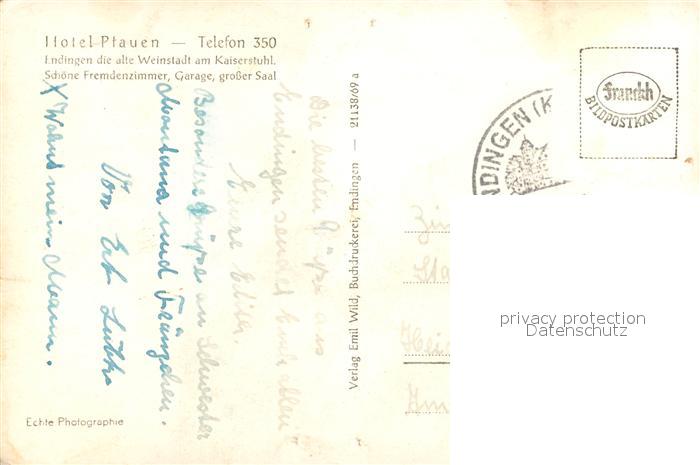 Hotel Pfauen — Telefon 350
Endingen die alte Weinstadt am Kaiserstuhl.
Schöne Fremdenzimmer, Garage, großer Saal
Die besten Grüße aus
Endingen sendet Euch allen
Eure Edith.
Besondere Grüße an Schwester
Montana und Fränzchen.
Von
X Wohnt mein Mann.
Echte Photographie
Verlag Emil Wild, Buchdruckerei, Endingen — 21138/69 a
NDINGEN (K
Franckh
BILDPOSTKARTEN
privacy protection
Datenschutz